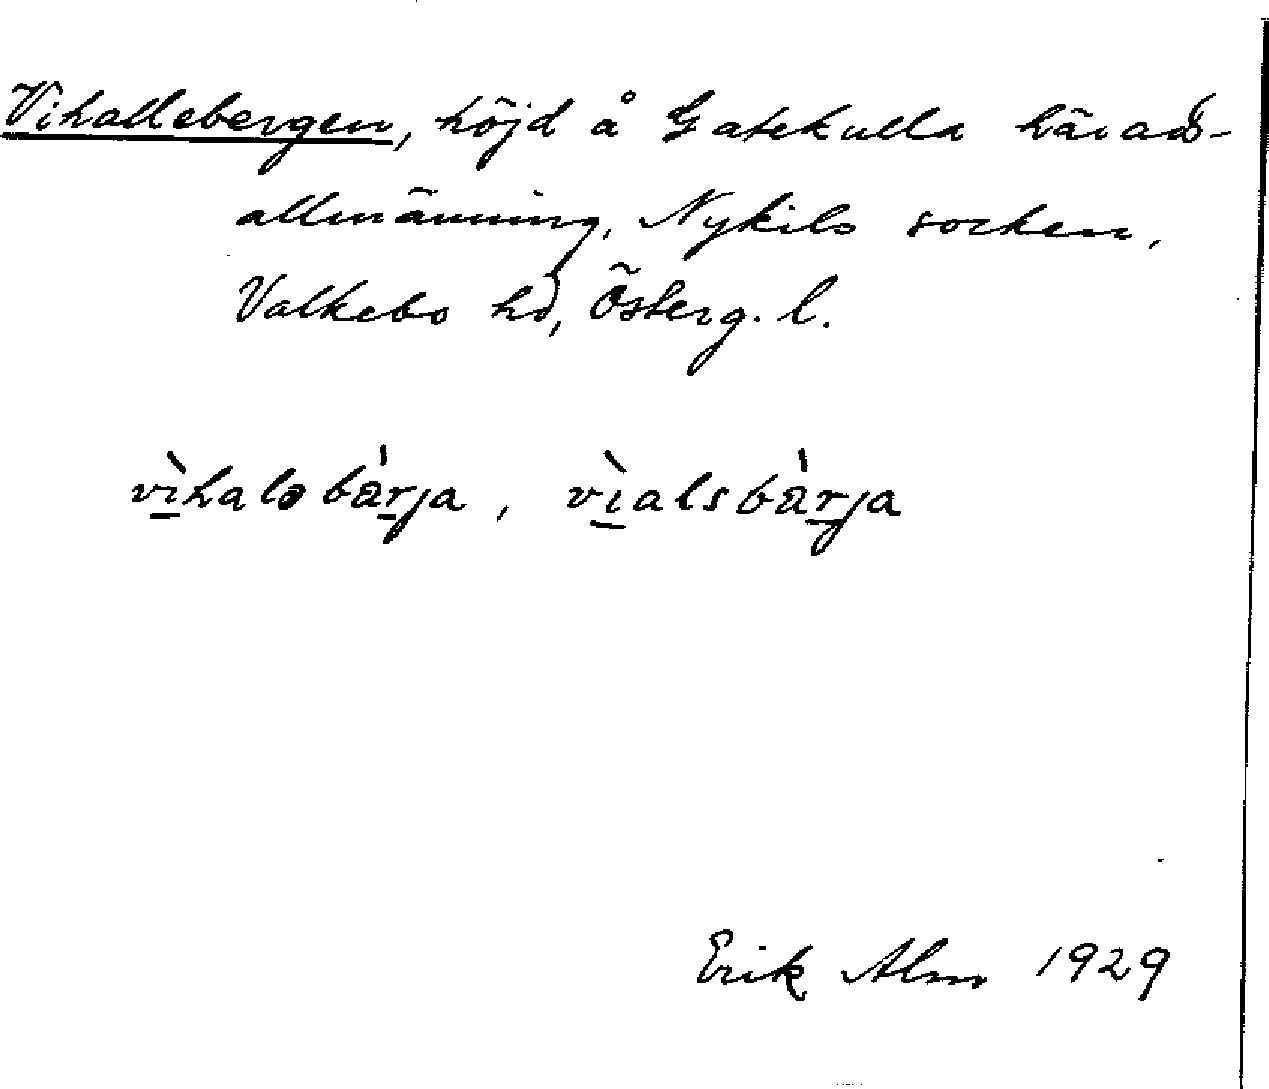 Vihallebergen, höjd å Gatekulla härads-
allmänning, Nykils socken,
Valkebo hd, Österg. l.
vìhaləbä̀rja, vìalsbä̀rja
Erik Alm 1929